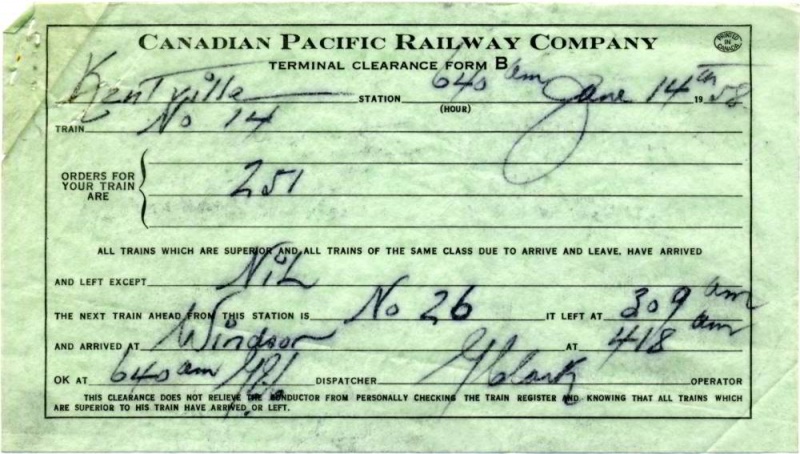 CANADIAN PACIFIC RAILWAY COMPANY
PRINTED IN CANADA
TERMINAL CLEARANCE FORM B
Kentville STATION 640 am (HOUR) June 14th 1958
TRAIN No 14
ORDERS FOR YOUR TRAIN ARE 251
ALL TRAINS WHICH ARE SUPERIOR AND ALL TRAINS OF THE SAME CLASS DUE TO ARRIVE AND LEAVE, HAVE ARRIVED
AND LEFT EXCEPT NiL
THE NEXT TRAIN AHEAD FROM THIS STATION IS No 26 IT LEFT AT 309 am
AND ARRIVED AT Windsor AT 418 am
OK AT 640 am DISPATCHER G Clark OPERATOR
THIS CLEARANCE DOES NOT RELIEVE THE CONDUCTOR FROM PERSONALLY CHECKING THE TRAIN REGISTER AND KNOWING THAT ALL TRAINS WHICH
ARE SUPERIOR TO HIS TRAIN HAVE ARRIVED OR LEFT.